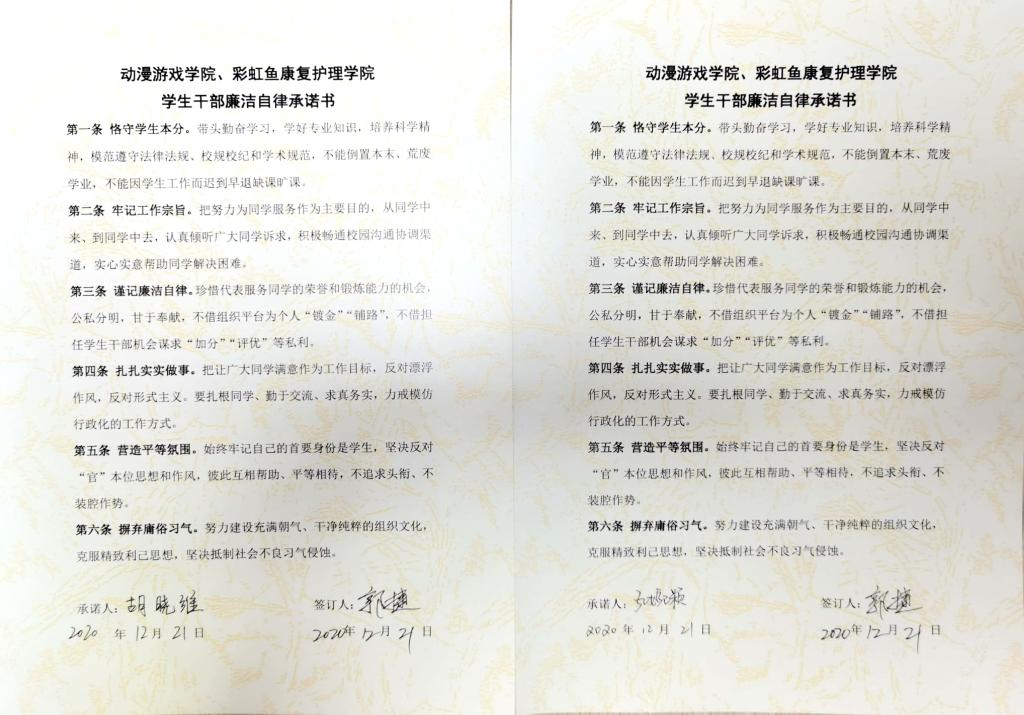 动漫游戏学院、彩虹鱼康复护理学院
学生干部廉洁自律承诺书
第一条 恪守学生本分。带头勤奋学习，学好专业知识，培养科学精
神，模范遵守法律法规、校规校纪和学术规范，不能倒置本末、荒废
学业，不能因学生工作而迟到早退缺课旷课。
第二条 牢记工作宗旨。把努力为同学服务作为主要目的，从同学中
来、到同学中去，认真倾听广大同学诉求，积极畅通校园沟通协调渠
道，实心实意帮助同学解决困难。
第三条 谨记廉洁自律。珍惜代表服务同学的荣誉和锻炼能力的机会，
公私分明，甘于奉献，不借组织平台为个人“镀金”“铺路”，不借担
任学生干部机会谋求“加分”“评优”等私利。
第四条 扎扎实实做事。把让广大同学满意作为工作目标，反对漂浮
作风，反对形式主义。要扎根同学、勤于交流、求真务实，力戒模仿
行政化的工作方式。
第五条 营造平等氛围。始终牢记自己的首要身份是学生，坚决反对
“官”本位思想和作风，彼此互相帮助、平等相待，不追求头衔、不
装腔作势。
第六条 摒弃庸俗习气。努力建设充满朝气、干净纯粹的组织文化，
克服精致利己思想，坚决抵制社会不良习气侵蚀。
承诺人：胡晓维 签订人：郭捷
2020 年 12 月 21 日 2020年 12 月 21 日
动漫游戏学院、彩虹鱼康复护理学院
学生干部廉洁自律承诺书
第一条 恪守学生本分。带头勤奋学习，学好专业知识，培养科学精
神，模范遵守法律法规、校规校纪和学术规范，不能倒置本末、荒废
学业，不能因学生工作而迟到早退缺课旷课。
第二条 牢记工作宗旨。把努力为同学服务作为主要目的，从同学中
来、到同学中去，认真倾听广大同学诉求，积极畅通校园沟通协调渠
道，实心实意帮助同学解决困难。
第三条 谨记廉洁自律。珍惜代表服务同学的荣誉和锻炼能力的机会，
公私分明，甘于奉献，不借组织平台为个人“镀金”“铺路”，不借担
任学生干部机会谋求“加分”“评优”等私利。
第四条 扎扎实实做事。把让广大同学满意作为工作目标，反对漂浮
作风，反对形式主义。要扎根同学、勤于交流、求真务实，力戒模仿
行政化的工作方式。
第五条 营造平等氛围。始终牢记自己的首要身份是学生，坚决反对
“官”本位思想和作风，彼此互相帮助、平等相待，不追求头衔、不
装腔作势。
第六条 摒弃庸俗习气。努力建设充满朝气、干净纯粹的组织文化，
克服精致利己思想，坚决抵制社会不良习气侵蚀。
承诺人： 签订人：郭捷
2020 年 12 月 21 日 2020年 12 月 21 日